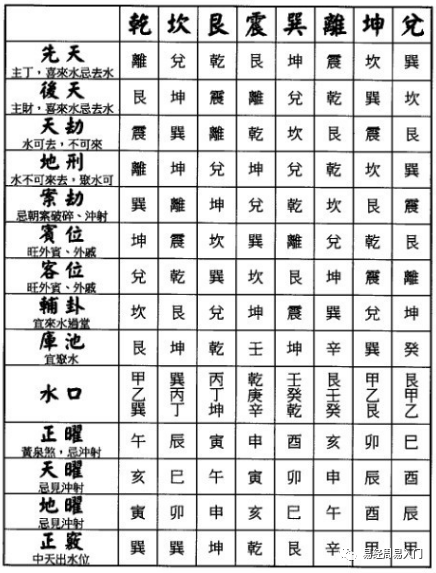 乾 坎 艮 震 巽 離 坤 兌
先天 離 兌 乾 艮 坤 震 坎 巽
主丁，喜來水忌去水
後天 艮 坤 震 離 兌 乾 巽 坎
主財，喜來水忌去水
天劫 震 巽 離 乾 坎 艮 震 艮
水可去，不可來
地刑 離 坤 兌 坤 兌 乾 坎 巽
水不可來去，聚水可
案劫 巽 離 坤 兌 乾 坎 艮 震
忌朝案破碎、沖射
賓位 坤 震 坎 巽 離 兌 乾 艮
旺外賓、外戚
客位 兌 乾 巽 坎 艮 坤 震 離
旺外賓、外戚
輔卦 坎 艮 兌 坤 震 巽 兌 坤
宜來水過堂
庫池 艮 坤 乾 壬 坤 辛 巽 癸
宜聚水
水口 甲乙巽 巽丙丁 丙丁坤 乾庚辛 壬癸乾 艮壬癸 甲乙艮 艮甲乙
正曜 午 辰 寅 申 酉 亥 卯 巳
黃泉煞，忌沖射
天曜 亥 巳 午 寅 卯 申 辰 酉
忌見沖射
地曜 寅 卯 申 亥 巳 午 酉 辰
忌見沖射
正竅 巽 巽 坤 乾 艮 辛 甲 甲
中天出水位
易经周易入门